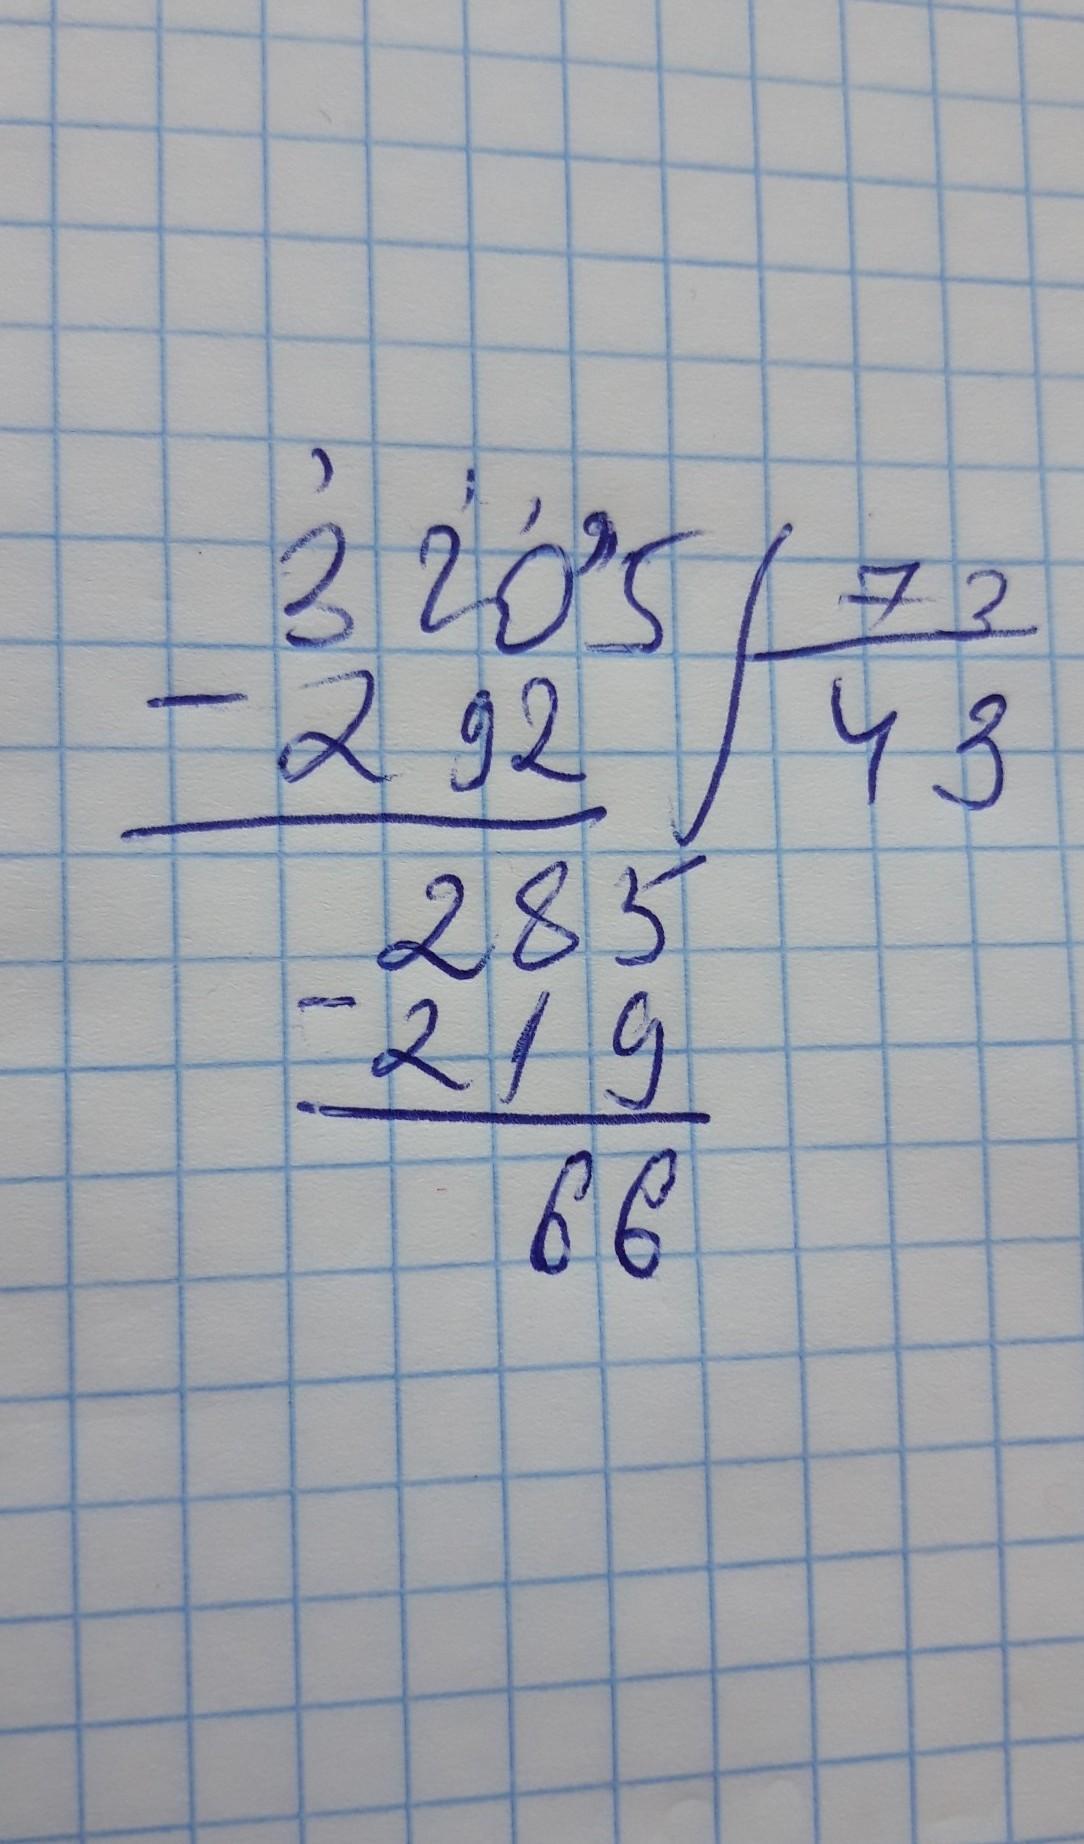 3205 73
- 292 43
285
- 219
66